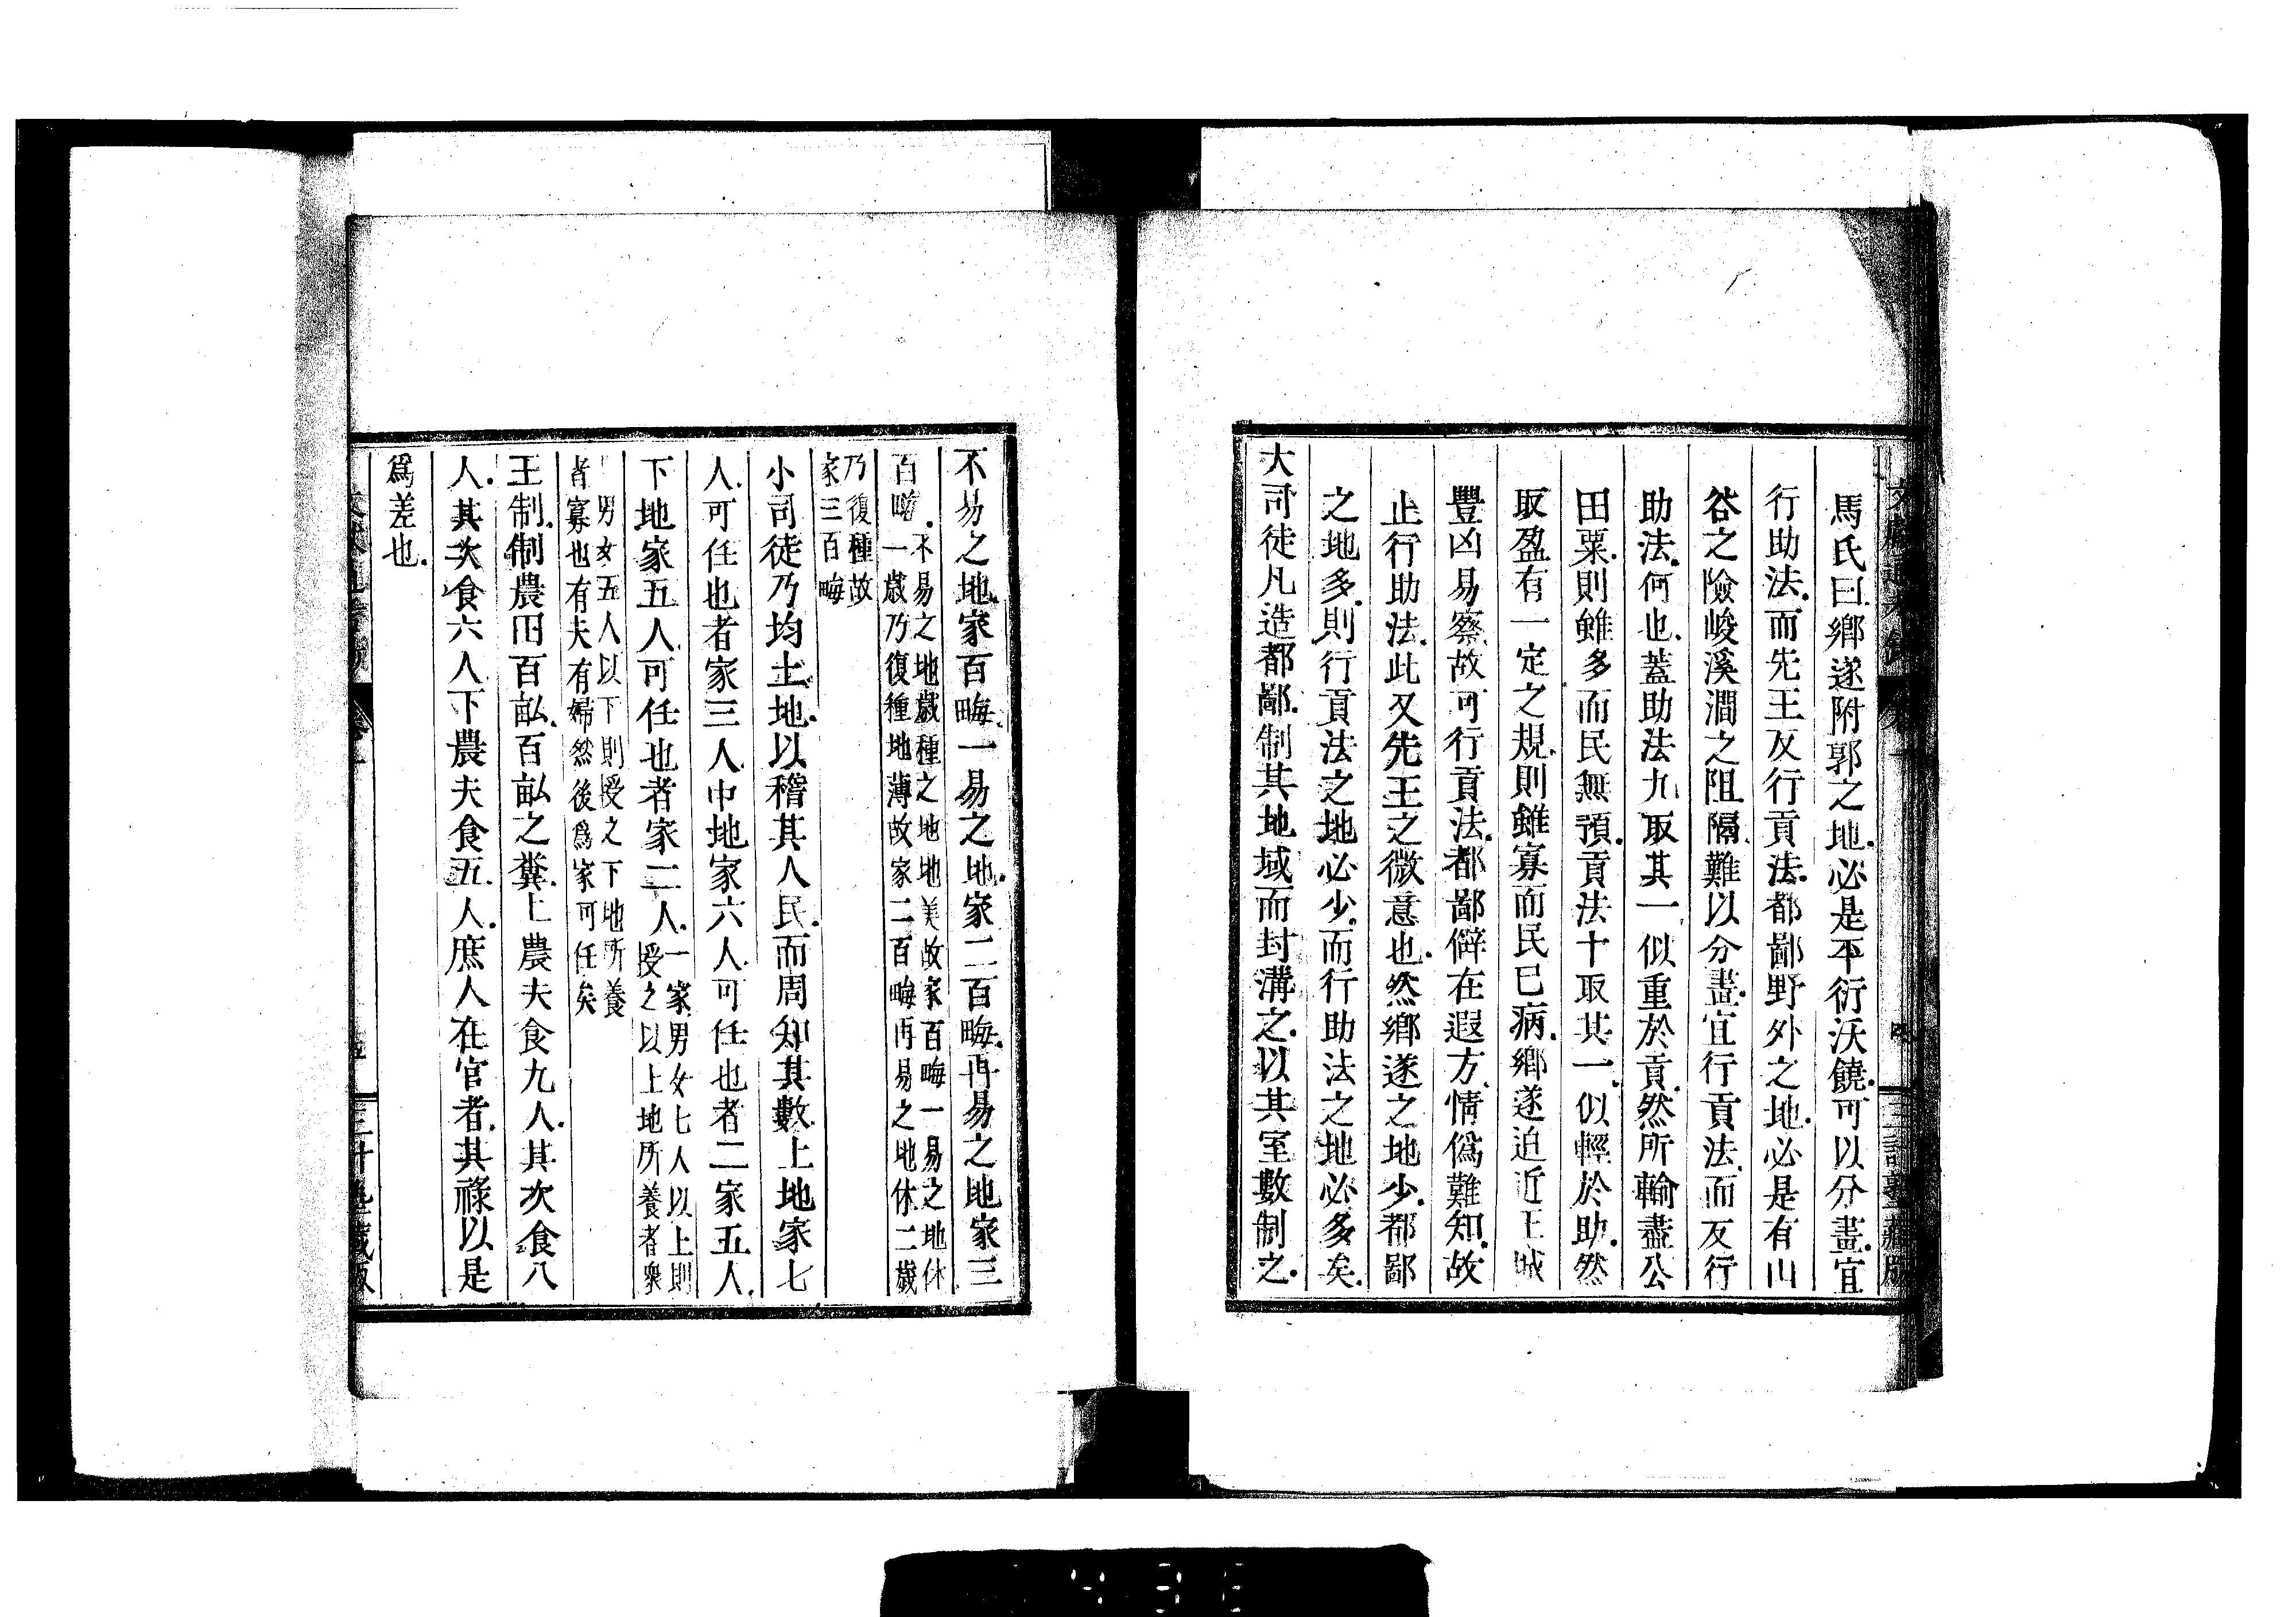 馬氏曰鄉遂附郭之地必是平衍沃饒可以分畫宜
行助法而先王反行貢法都鄙野外之地必是有山
谷之險峻溪澗之阻隔難以分畫宜行貢法而反行
助法何也蓋助法九取其一似重於貢然所輸盡公
田粟則雖多而民無預貢法十取其一似輕於助然
取盈有一定之規則雖寡而民已病鄉遂迫近王城
豐凶易察故可行貢法都鄙僻在遐方情僞難知故
止行助法此又先王之微意也然鄉遂之地少都鄙
之地多則行貢法之地必少而行助法之地必多矣
大司徒凡造都鄙制其地域而封溝之以其室數制之
不易之地家百畮一易之地家二百畮再易之地家三
百畮
不易之地歲種之地地美故家百畮一易之地休
一歲乃復種地薄故家二百畮再易之地休二歲
乃復種故
家三百畮
小司徒乃均土地以稽其人民而周知其數上地家七
人可任也者家三人中地家六人可任也者二家五人
下地家五人可任也者家二人
一家男女七人以上則
授之以上地所養者衆
男女五人以下則授之下地所養
者寡也有夫有婦然後爲家可任矣
王制制農田百畝百畝之糞上農夫食九人其次食八
人其次食六人下農夫食五人庶人在官者其祿以是
爲差也